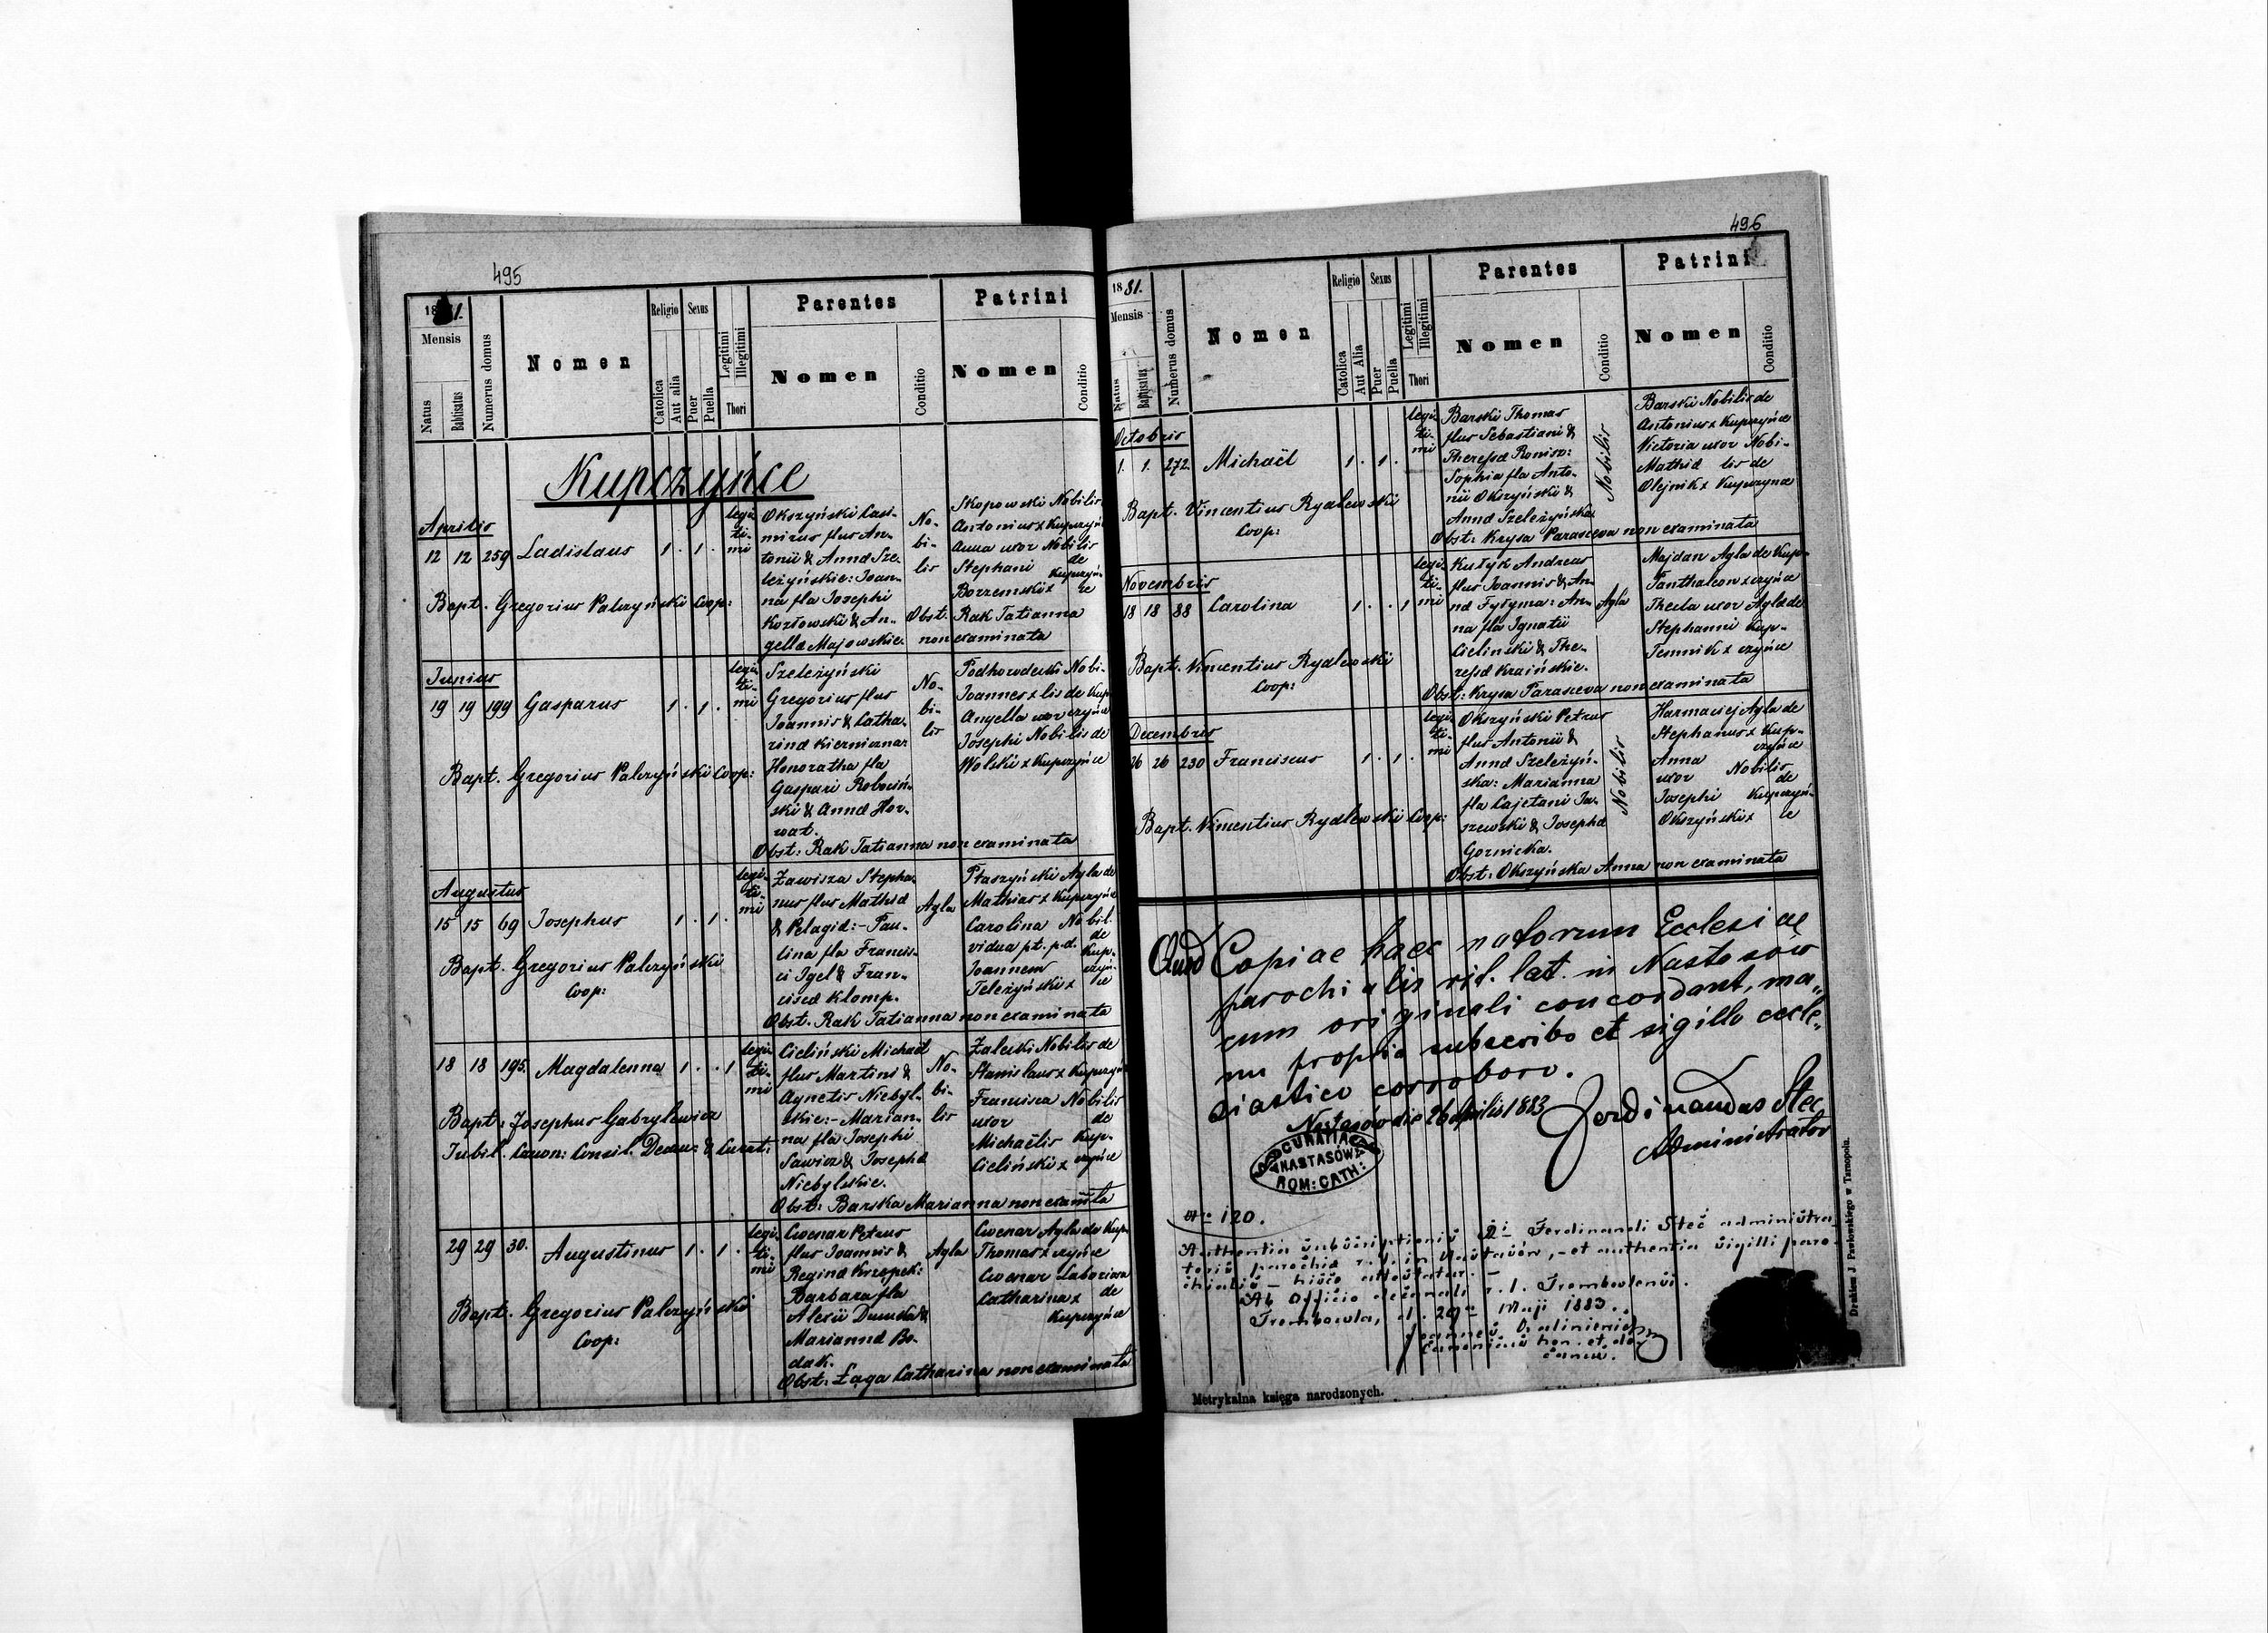 495
1881.
Mensis
Natus
Babtisatus
Numerus domus
Nomen
Religio
Catolica
Aut alia
Sexus
Puer
Puella
Legitimi
Illegitimi
Thori
Parentes
Nomen
Conditio
Patrini
Nomen
Conditio
Kupczyńce
Aprilis
12 12 259 Ladislaus 1 . 1 .
legi-
ti-
mi
Okszyński Casi-
mirus flus An-
tonii & Annæ Sze-
leżyńskie: Joan-
na fla Josephi
Kozłowski & An-
gellæ Majowskie.
No-
bi-
lis
Skopowski Nobilis
Antonius x Kupczyń
Anna uxor Nobilis
Stephani de
Borzemski x Kupczyń-
ce
Obst. Rak Tatianna
non examinata
Bapt. Gregorius Palczyński Coop:
Junius
19 19 199 Gasparus 1 . 1 .
legi-
ti-
mi
Szeleżyński
Gregorius flus
Joannis & Catha-
rinæ Kierniczna
Honoratha fla
Gaspari Robociń-
ski & Annæ Hor-
wat.
No-
bi-
lis
Podhorodecki Nobi-
Joannes x lis de Kup
Angella uxor czyńce
Josephi Nobilis de
Wolski x Kupczyńce
Bapt. Gregorius Palczyński Coop:
Obst: Rak Tatianna non examinata
Augustus
15 15 69 Josephus 1 . 1 .
legi-
ti-
mi
Zawisza Stepha-
nus flus Mathiæ
& Pelagiæ:- Pau-
lina fla Francis-
ci Igel & Fran-
ciscæ Klomp.
Agla
Ptaszyński Agla de
Mathias x Kupczyńce
Carolina Nobil.
vidua pt. pd. de
Joannem Kup-
Teleżyński x czyń-
ce
Bapt. Gregorius Palczyński
Coop:
Obst. Rak Tatianna non examinata
18 18 195. Magdalenna 1 . . 1
legi-
ti-
mi
Cieliński Michaël
flus Martini &
Agnetis Niebyl-
skie:- Marian-
na fla Josephi
Sawicz & Josephæ
Niebylskie.
No-
bi-
lis
Zaleski Nobilis de
Stanislaus x Kupczyń
Francisca Nobilis
uxor de
Michaëlis Kup-
Cieliński x czyńce
Bapt: Josephus Gabrylewicz
Jubil. Canon: Consil. Decan: & Curat:
Obst: Barska Marianna non examta
29 29 30. Augustinus 1 . 1 .
legi-
ti-
mi
Cwenar Petrus
flus Joannis &
Reginæ Krzepek:
Barbara fla
Alexii Dumka &
Mariannæ Bo-
dak.
Agla
Cwenar Agla de Kup-
Thomas x czyńce
Cwenar Laboriosa
Catharina x de
Kupczyńce
Bapt. Gregorius Palczyński
Coop:
Obst: Łaga Catharina non examinata
496
1881.
Mensis
Natus
Baptisatus
Numerus domus
Nomen
Religio
Catolica
Aut Alia
Sexus
Puer
Puella
Legitimi
Illegitimi
Thori
Parentes
Nomen
Conditio
Patrini
Nomen
Conditio
Octobris
1. 1. 272. Michaël 1 . 1 .
legi-
ti-
mi
Barski Thomas
flus Sebastiani &
Theresæ Roniso:
Sophia fla Anto-
nii Okszyński &
Annæ Szeleżyńska
Nobilis
Barski Nobilis de
Antonius x Kupczyńce
Victoria uxor Nobi-
Mathiæ lis de
Olejnik x Kupczyńce
Bapt. Vincentius Rydlewski
Coop:
Obst: Krysa Parasceva non examinata
Novembris
18 18 88 Carolina 1 . . 1
legi-
ti-
mi
Kułyk Andreas
flus Joannis & An-
næ Tytyma: An-
na fla Ignatii
Cieliński & The-
resæ Kraińskie.
Agla
Majdan Agla de Kup-
Panthaleon x czyńce
Thecla uxor Agla de
Stephanni Kup-
Temnik x czyńce
Bapt. Vincentius Rydlewski
Coop:
Obst: Krysa Parasceva non examinata
Decembris
26 26 230 Franciscus 1 . 1 .
legi-
ti-
mi
Okszyński Petrus
flus Antonii &
Annæ Szeleżyń-
ska: Marianna
fla Cajetani Ja-
szewski & Josephæ
Gornicka.
Nobilis
Harmaciej Agla de
Stephanus x Kup-
czyńce
Anna
uxor Nobilis
de
Josephi Kupczyń-
Okszyński x ce
Bapt. Vincentius Rydlewski Coop:
Obst: Okszyńska Anna non examinata
Quod Copiae haec natorum Ecclesiae
parochialis rit. lat. in Nastasów
cum originali concordant, ma„
nu propria subscribo et sigillo eccle„
siastico corroboro.
Nastasów die 26 Aprilis 1883
Ferdinandus Stec
Administrator
NASTASÓW
ROM: CATH:
No 120.
Authentia subscriptionis Rdi Ferdinandi Steć administra-
toris parochiæ r. l. in Nastasów, - et authentia sigilli paro-
chialis - hisce attestatur. -
Ab Officio decanali r. l. Trembowlensi.
Trembowla, d. 29a Maji 1883.
Canonicus hon. et de-
canus.
Metrykalna księga narodzonych.
Drukiem J. Pawłowskiego w Tarnopolu.